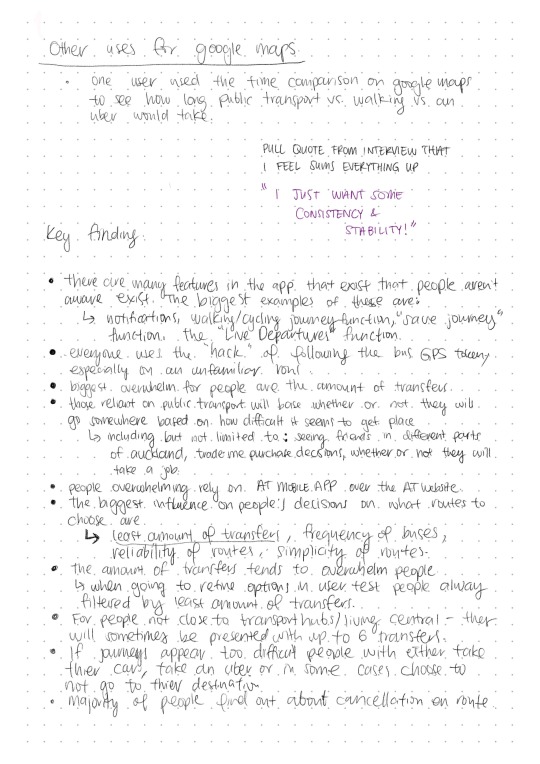 Other uses for google maps
• One user used the time comparison on google maps
to see how long public transport vs. walking vs. an
uber would take.
PULL QUOTE FROM INTERVIEW THAT
I FEEL SUMS EVERYTHING UP
" I JUST WANT SOME
CONSISTENCY &
STABILITY!"
Key finding:
• there are many features in the app that exist that people aren't
aware exist. The biggest examples of these are:
↳ notifications, walking/cycling journey function, "save journey"
function, the "Live Departures" function.
• everyone uses the "hack" of following the bus GPS
especially on an unfamiliar
• biggest overwhelm for people are the amount of transfers.
• those reliant on public transport will base whether or not they will
go somewhere based on how difficult it seems to get place
↳ including but not limited to: seeing friends in different parts
of auckland, trademe purchase decisions, whether or not they will
take a job.
• people overwhelming rely on AT MOBILE APP over the AT website.
• the biggest influence on people's decisions on what routes to
choose are
↳ least amount of transfers, frequency of buses,
reliability of routes, simplicity of routes.
• the amount of transfers tends to overwhelm people
↳ when going to refine options in user test people always
filtered by least amount of transfers.
• For people not close to transport hubs/living central - they
will sometimes be presented with up to 6 transfers.
• If journeys appear too difficult people with either take
thier car, take an uber or in some cases choose to
not go to thier destination
• majority of people find out about cancellation en route